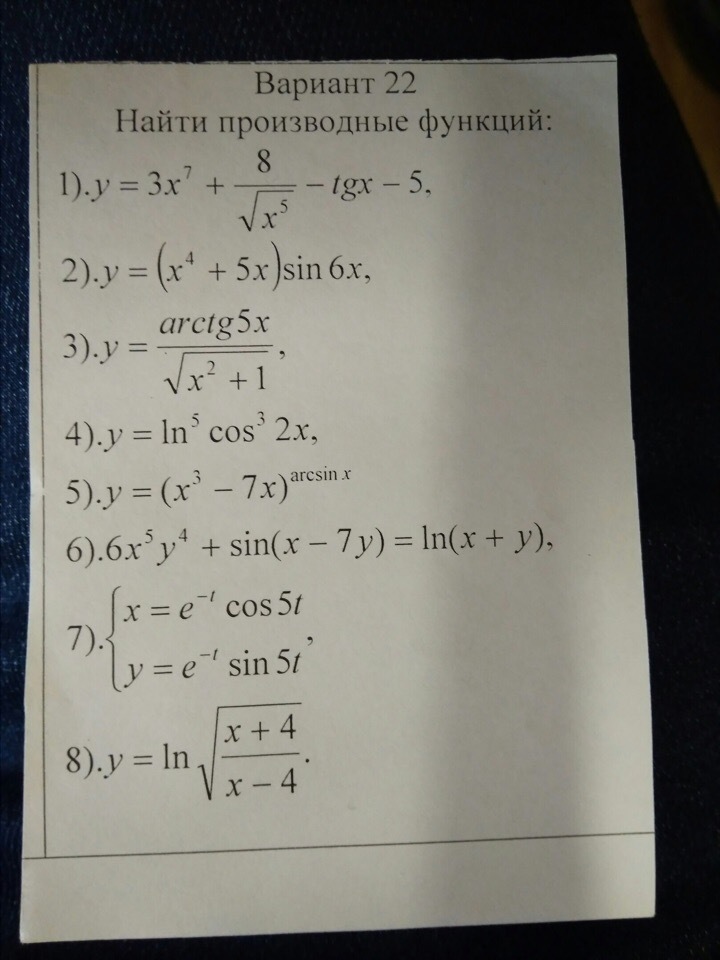 Вариант 22
Найти производные функций:
1).y = 3x⁷ + 8/√x⁵ − tgx − 5,
2).y = (x⁴ + 5x)sin 6x,
3).y = arctg5x/√(x² + 1),
4).y = ln⁵ cos³ 2x,
5).y = (x³ − 7x)^(arcsin x)
6).6x⁵y⁴ + sin(x − 7y) = ln(x + y),
7).{x = e⁻ᵗ cos 5t
y = e⁻ᵗ sin 5t,
8).y = ln √((x + 4)/(x − 4)).